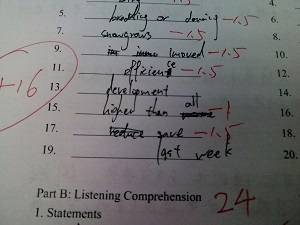 5. or -1.5 6.
7. -1.5 8.
9. moved -1.5 10.
+16
11. -1.5 12.
13. development 14.
15. higher than all -1 16.
17. gave -1.5 18.
19. last week 20.
Part B: Listening Comprehension 24
1. Statements